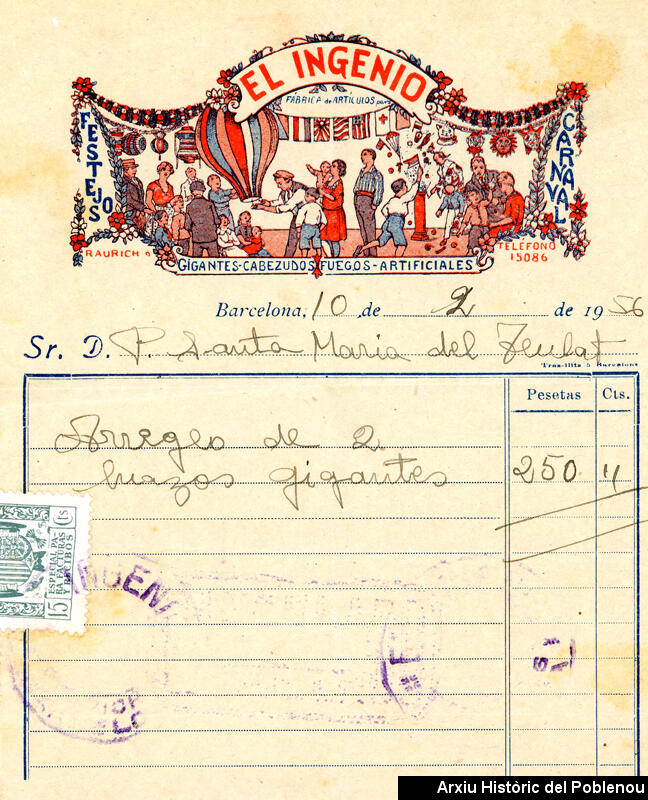 EL INGENIO
FÁBRICA de ARTÍCULOS para
FESTEJOS
CARNAVAL
RAURICH 6
TELÉFONO
15086
GIGANTES-CABEZUDOS FUEGOS-ARTIFICIALES
Barcelona, 10 de 2 de 1956
Sr. D. P. Santa Maria del Teulat
Barcelona
Pesetas Cts.
Arreglo de 2
brazos gigantes 250 "
15 Cts
ESPECIAL PA-
RA FACTURAS
Y RECIBOS
Arxiu Històric del Poblenou